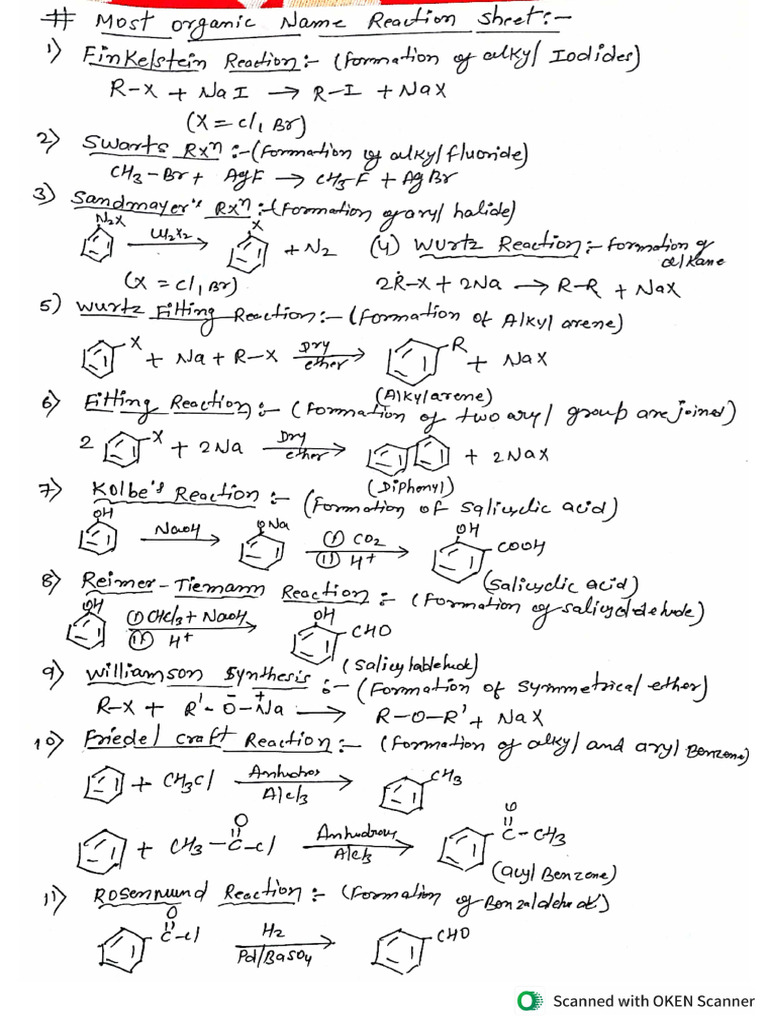 # Most organic Name Reaction sheet:-
1) Finkelstein Reaction:- (formation of alkyl Iodides)
R-X + NaI → R-I + NaX
(X = Cl, Br)
2) Swarts Rxn :- (formation of alkyl fluoride)
CH3-Br + AgF → CH3F + AgBr
3) Sandmayer's Rxn :- (formation of aryl halide)
N2X Cu2X2 → X + N2
(X = Cl, Br)
(4) Wurtz Reaction:- formation of alkane
2R-X + 2Na → R-R + NaX
5) Wurtz Fitting Reaction:- (formation of Alkyl arene)
X + Na + R-X Dry ether → R + NaX
(Alkylarene)
6) Fitting Reaction:- (formation of two aryl group are joined)
2 X + 2Na Dry ether → + 2NaX
(Diphenyl)
7) Kolbe's Reaction :- (formation of salicylic acid)
OH NaOH → ONa (i) CO2 (ii) H+ → OH COOH
(salicyclic acid)
8) Reimer-Tiemann Reaction :- (formation of salicyldehyde)
OH (i) CHCl3 + NaOH (ii) H+ → OH CHO
(salicylaldehyde)
9) Williamson Synthesis :- (formation of symmetrical ether)
R-X + R'-O-Na → R-O-R' + NaX
10) Friedel craft Reaction:- (formation of alkyl and aryl Benzene)
+ CH3Cl Anhydros AlCl3 → CH3
+ CH3-C-Cl O Anhydrous AlCl3 → O C-CH3
(acyl Benzene)
11) Rosenmund Reaction :- (formation of Benzaldehyde)
O C-Cl H2 Pd/BaSO4 → CHO
Scanned with OKEN Scanner